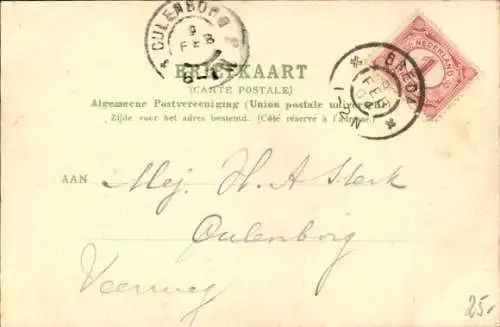 CULENBORG
9
FEB
BREDA
FEB
12-1N
NEDERLAND
1
BRIEFKAART
(CARTE POSTALE)
Algemeene Postvereeniging (Union postale universelle)
Zijde voor het adres bestemd. (Côté réservé à l'adresse.)
AAN Mej. H. A Sterk
Culenborg
Veerweg
25.-